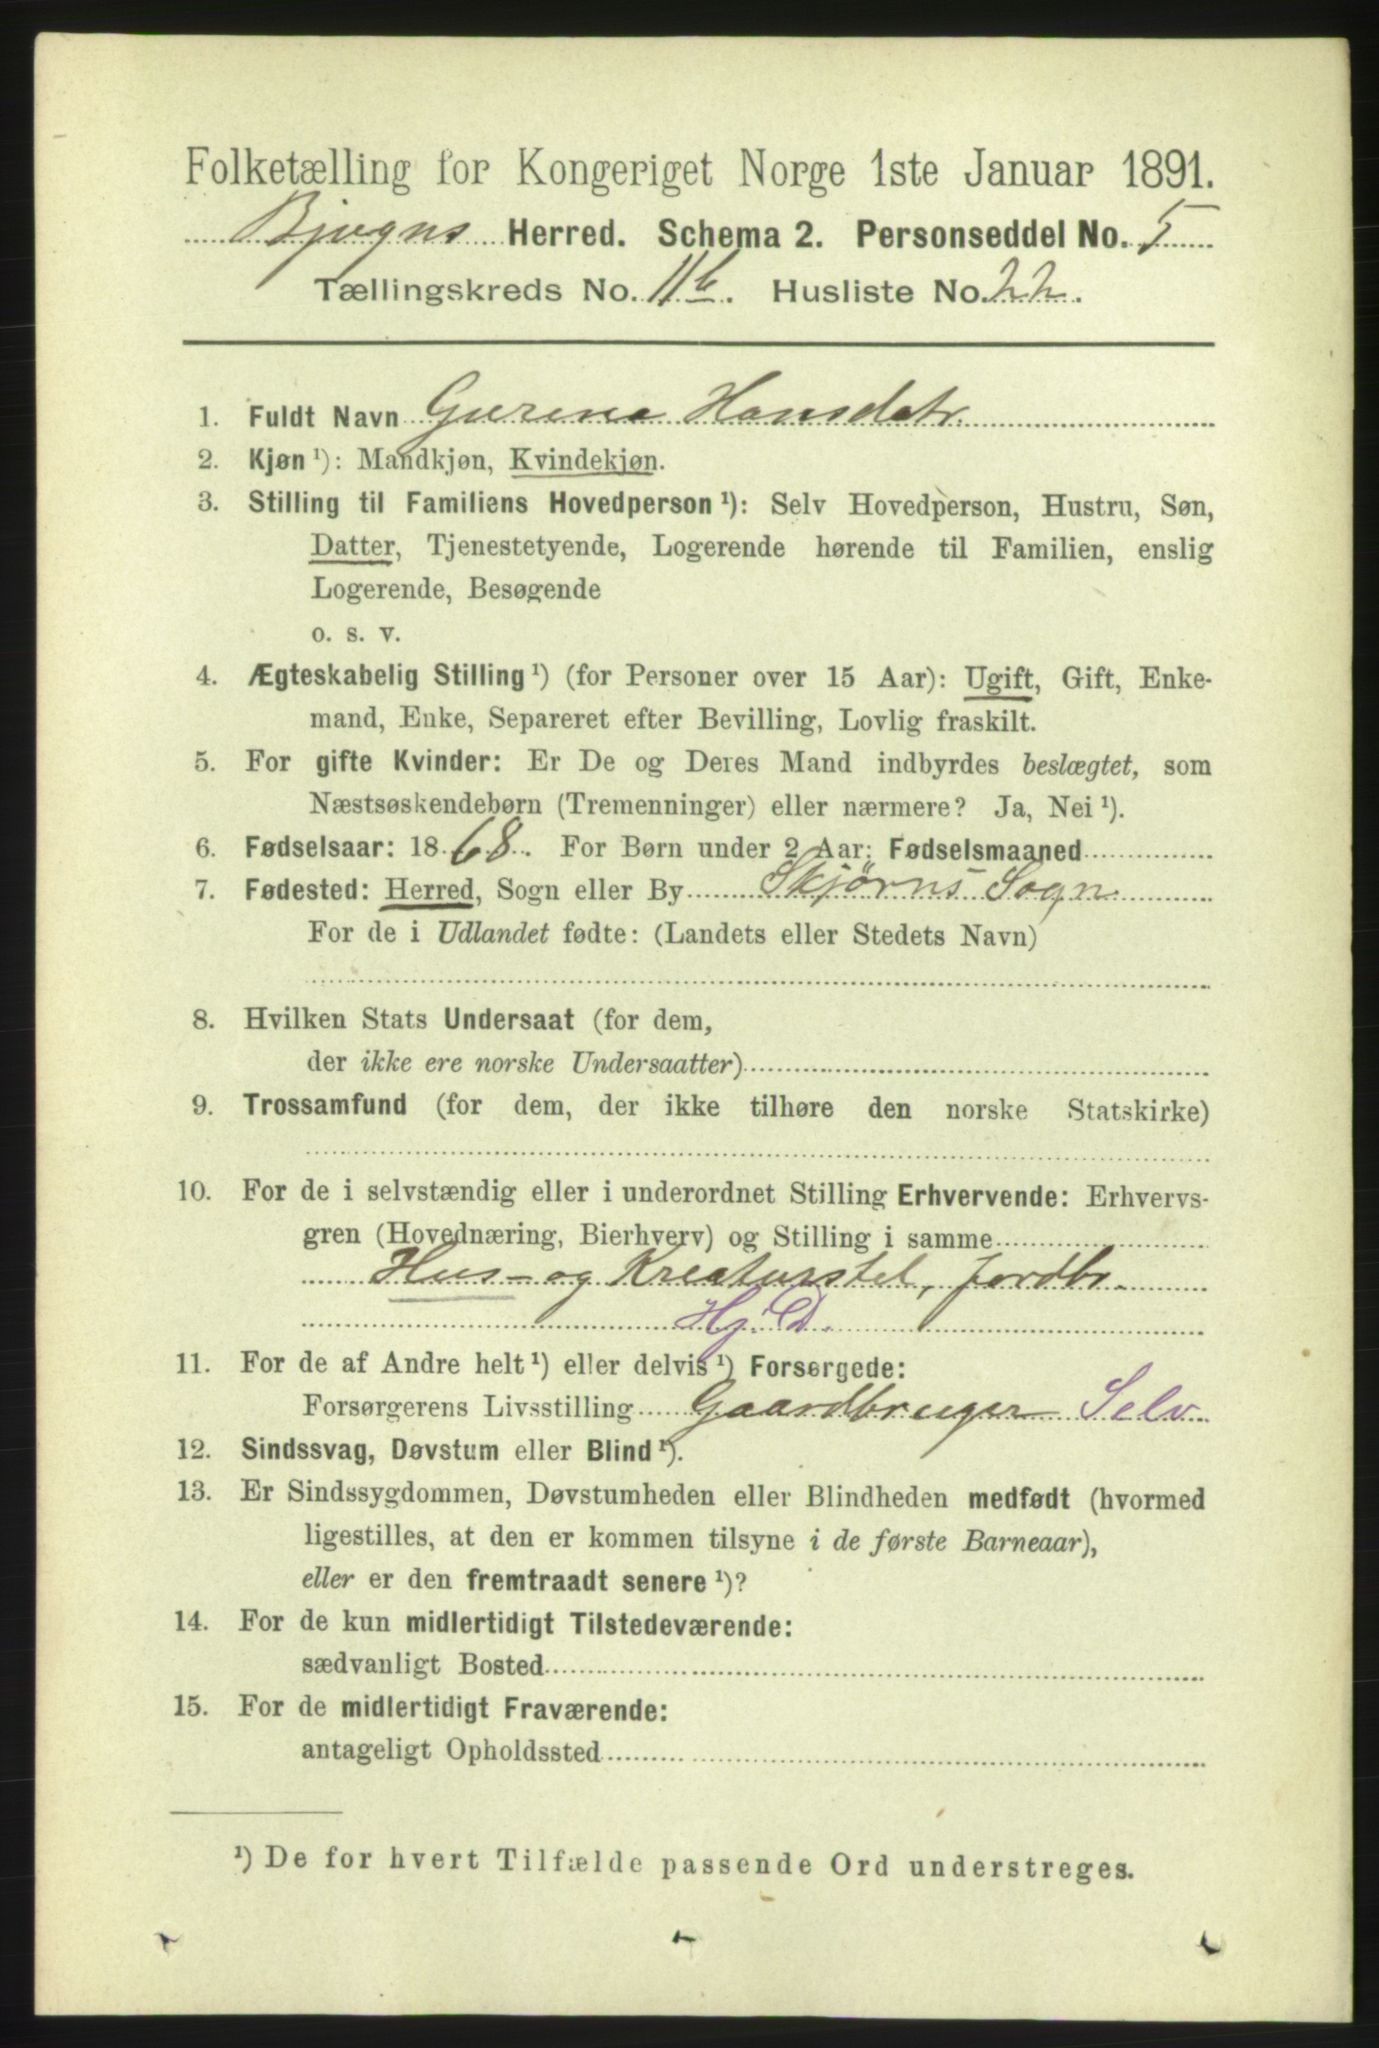 Folketælling for Kongeriget Norge 1ste Januar 1891.
Bjugns Herred. Schema 2. Personseddel No. 5
Tællingskreds No. 11 b. Husliste No. 22.
1. Fuldt Navn Gurina Hansdatr.
2. Kjøn ¹): Mandkjøn, Kvindekjøn.
3. Stilling til Familiens Hovedperson ¹): Selv Hovedperson, Hustru, Søn,
Datter, Tjenestetyende, Logerende hørende til Familien, enslig
Logerende, Besøgende
o. s. v.
4. Ægteskabelig Stilling ¹) (for Personer over 15 Aar): Ugift, Gift, Enke-
mand, Enke, Separeret efter Bevilling, Lovlig fraskilt.
5. For gifte Kvinder: Er De og Deres Mand indbyrdes beslægtet, som
Næstsøskendebørn (Tremenninger) eller nærmere? Ja, Nei ¹).
6. Fødselsaar: 1868. For Børn under 2 Aar: Fødselsmaaned
7. Fødested: Herred, Sogn eller By Skjørns Sogn
For de i Udlandet fødte: (Landets eller Stedets Navn)
8. Hvilken Stats Undersaat (for dem,
der ikke ere norske Undersaatter)
9. Trossamfund (for dem, der ikke tilhøre den norske Statskirke)
10. For de i selvstændig eller i underordnet Stilling Erhvervende: Erhvervs-
gren (Hovednæring, Bierhverv) og Stilling i samme
Hus- og Kreaturstel, Jordbr.
Hj. D.
11. For de af Andre helt ¹) eller delvis ¹) Forsørgede:
Forsørgerens Livsstilling Gaardbruger Selv
12. Sindssvag, Døvstum eller Blind ¹).
13. Er Sindssygdommen, Døvstumheden eller Blindheden medfødt (hvormed
ligestilles, at den er kommen tilsyne i de første Barneaar),
eller er den fremtraadt senere ¹)?
14. For de kun midlertidigt Tilstedeværende:
sædvanligt Bosted
15. For de midlertidigt Fraværende:
antageligt Opholdssted
¹) De for hvert Tilfælde passende Ord understreges.